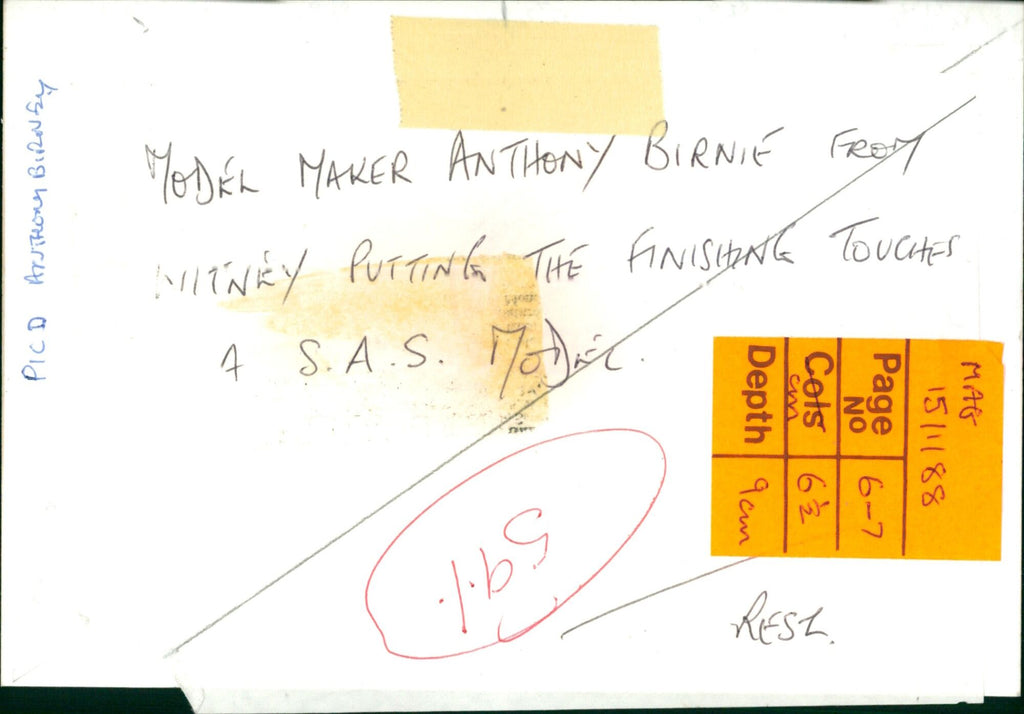 PIC D ANTHONY BIRNEY
MODEL MAKER ANTHONY BIRNIE FROM
WITNEY PUTTING THE FINISHING TOUCHES
A S.A.S. MODEL.
MAG
15/1/88
Page NO 6-7
Cols cm 6½
Depth 9cm
59%